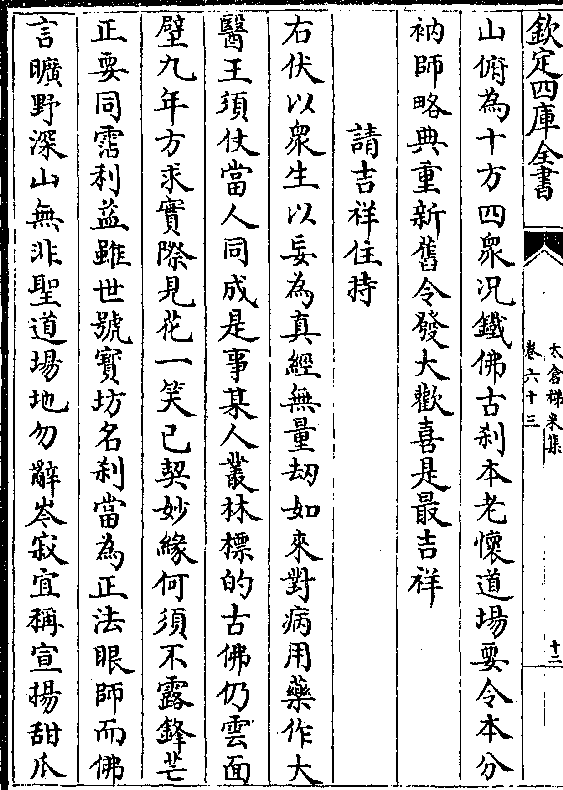 欽定四庫全書
太倉稊米集
卷六十三
十二
山俯為十方四衆况鐵佛古刹本老懷道場要令本分
衲師略典重新舊令發大歡喜是最吉祥
請吉祥住持
右伏以衆生以妄為真經無量劫如來對病用藥作大
醫王須仗當人同成是事某人叢林標的古佛仍雲面
壁九年方求實際見花一笑已契妙緣何須不露鋒芒
正要同霑利益雖世號寶坊名刹當為正法眼師而佛
言曠野深山無非聖道場地勿辭岑寂宜稱宣揚甜瓜